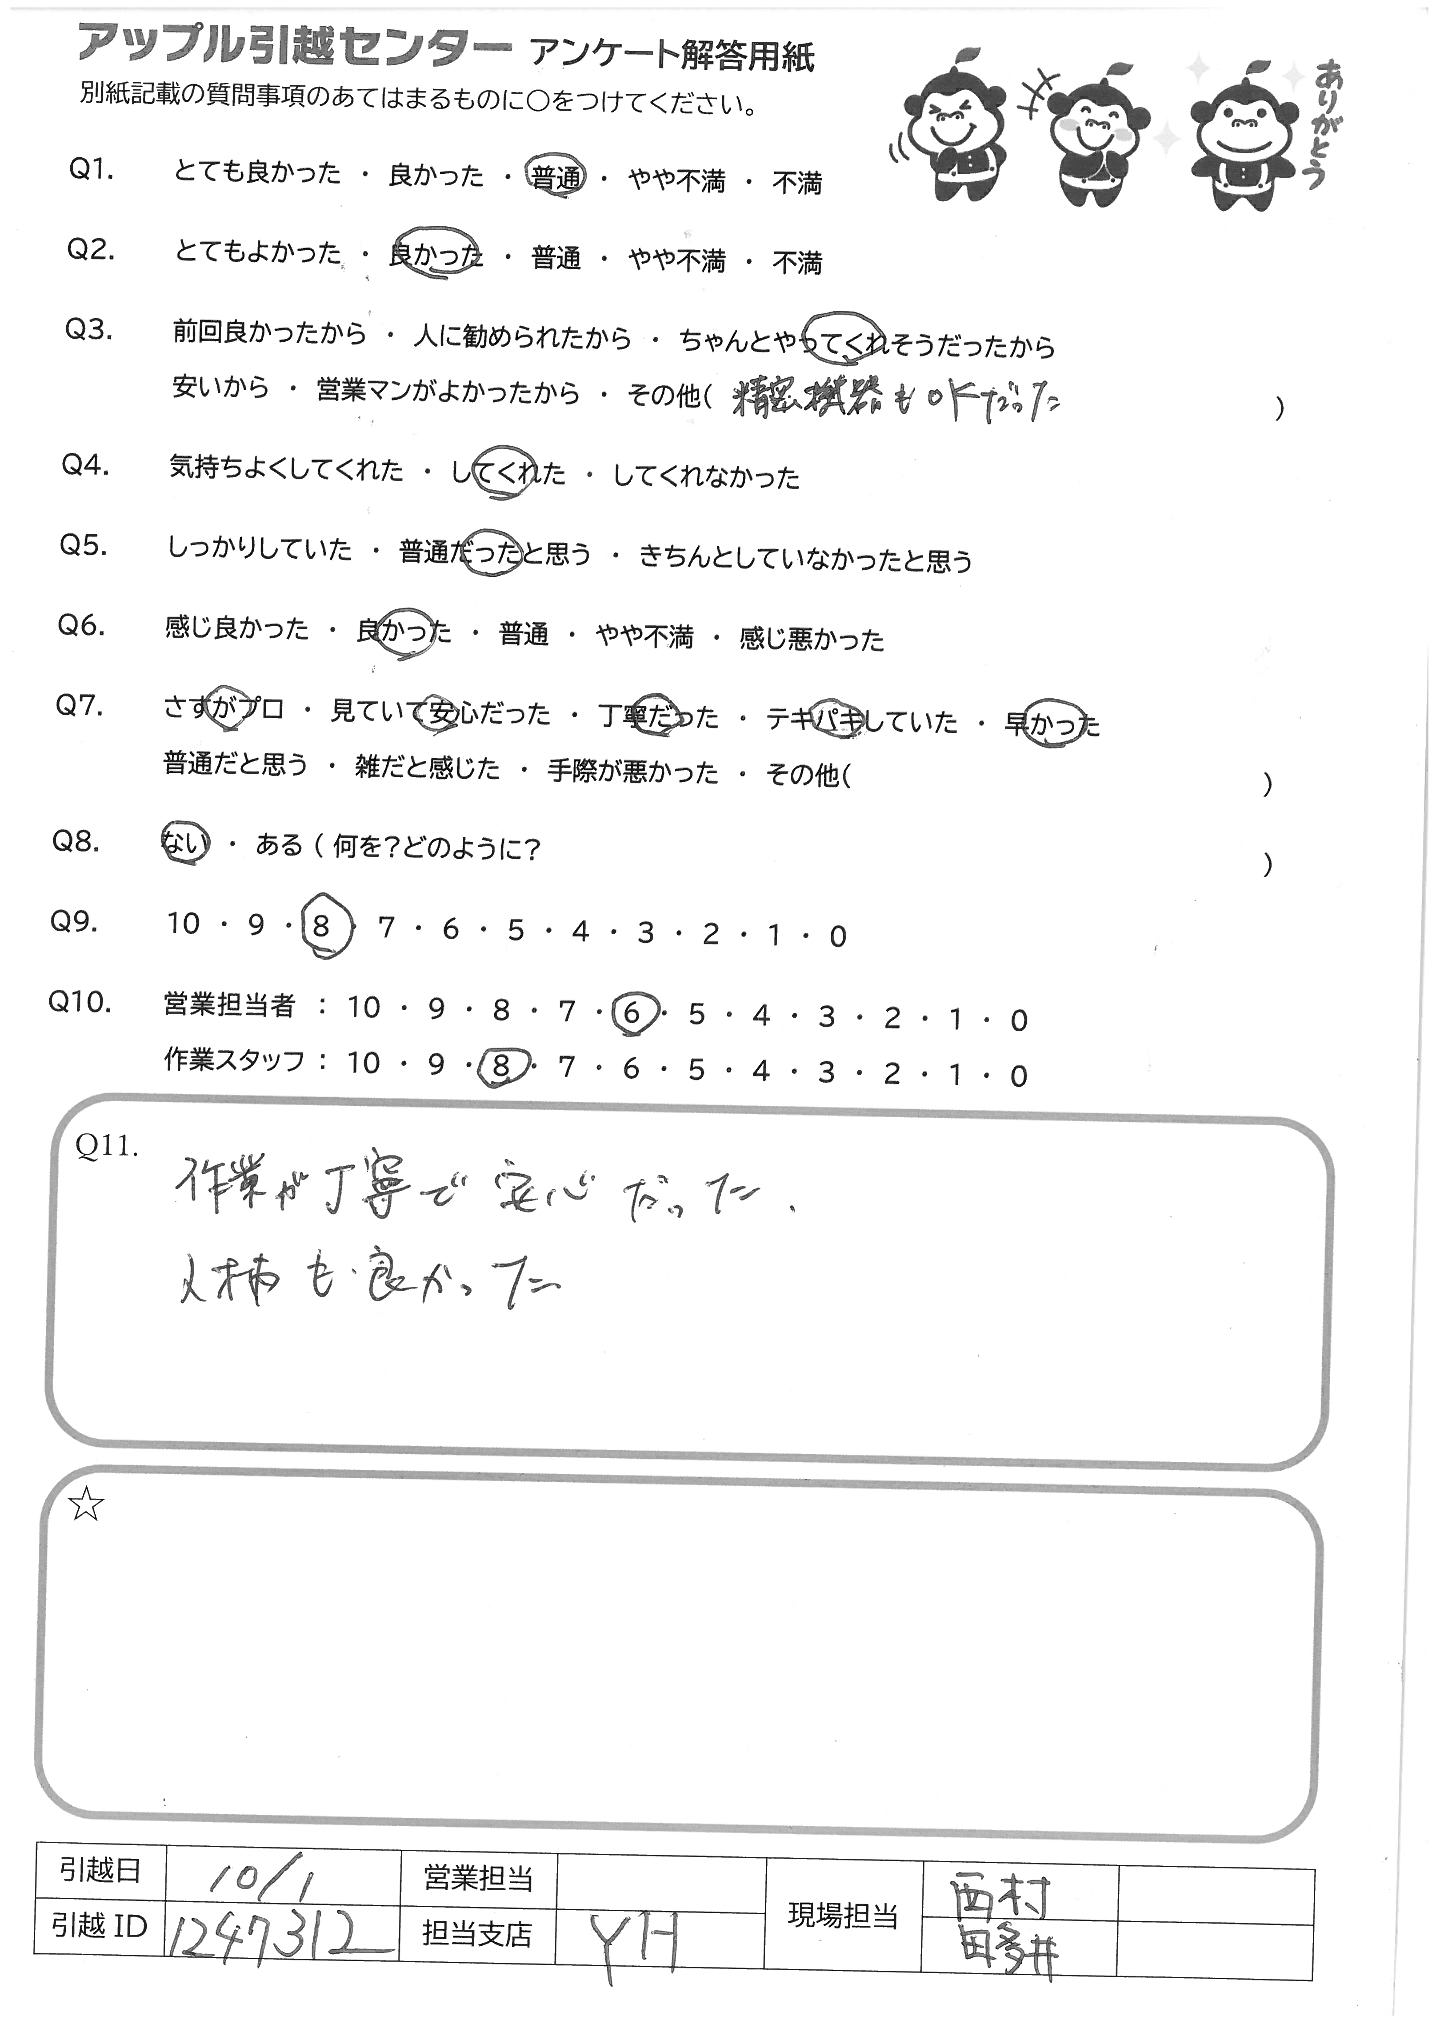 アップル引越センター アンケート解答用紙
別紙記載の質問事項のあてはまるものに○をつけてください。
ありがとう
Q1. とても良かった ・ 良かった ・ 普通 ・ やや不満 ・ 不満
Q2. とてもよかった ・ 良かった ・ 普通 ・ やや不満 ・ 不満
Q3. 前回良かったから ・ 人に勧められたから ・ ちゃんとやってくれそうだったから
安いから ・ 営業マンがよかったから ・ その他( 精密機器もOKだった )
Q4. 気持ちよくしてくれた ・ してくれた ・ してくれなかった
Q5. しっかりしていた ・ 普通だったと思う ・ きちんとしていなかったと思う
Q6. 感じ良かった ・ 良かった ・ 普通 ・ やや不満 ・ 感じ悪かった
Q7. さすがプロ ・ 見ていて安心だった ・ 丁寧だった ・ テキパキしていた ・ 早かった
普通だと思う ・ 雑だと感じた ・ 手際が悪かった ・ その他( )
Q8. ない ・ ある ( 何を?どのように? )
Q9. 10 ・ 9 ・ 8 ・ 7 ・ 6 ・ 5 ・ 4 ・ 3 ・ 2 ・ 1 ・ 0
Q10. 営業担当者 : 10 ・ 9 ・ 8 ・ 7 ・ 6 ・ 5 ・ 4 ・ 3 ・ 2 ・ 1 ・ 0
作業スタッフ : 10 ・ 9 ・ 8 ・ 7 ・ 6 ・ 5 ・ 4 ・ 3 ・ 2 ・ 1 ・ 0
Q11. 作業が丁寧で安心だった.
人柄も良かった
☆
引越日 10/1 営業担当 現場担当 西村
引越 ID 1247312 担当支店 YH 田多井